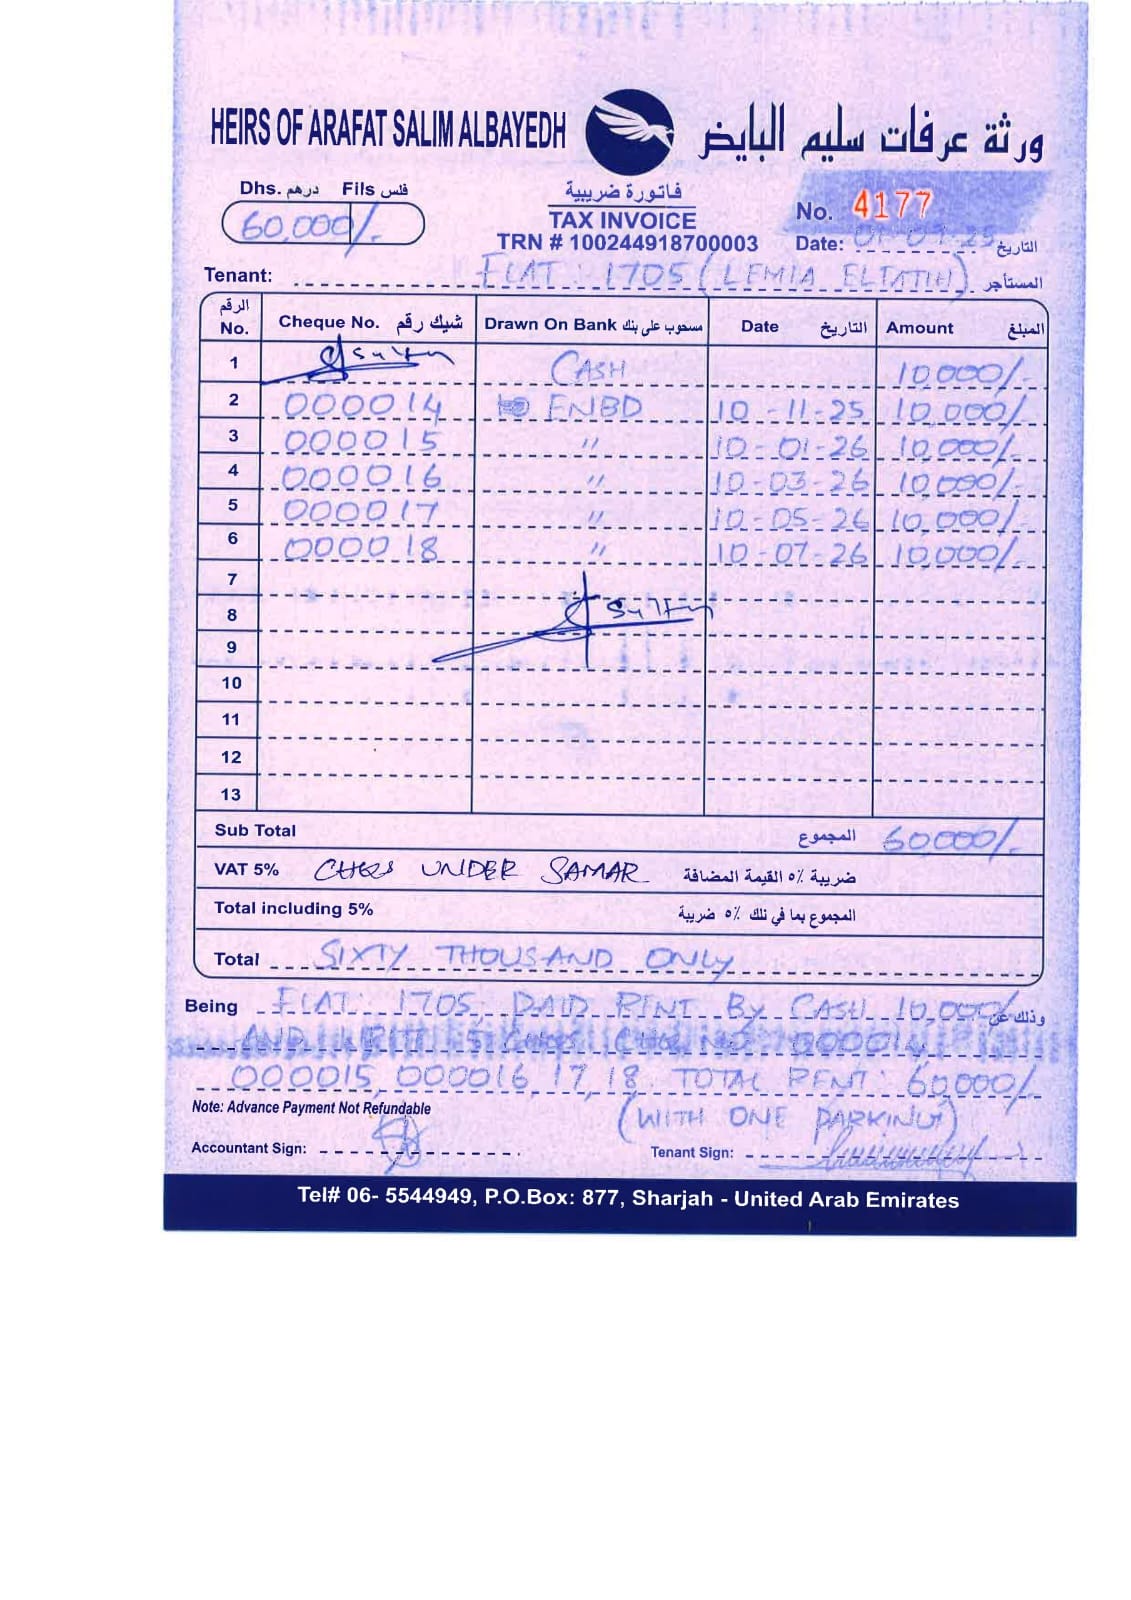 HEIRS OF ARAFAT SALIM ALBAYEDH ورثة عرفات سليم البايض
Dhs. درهم Fils فلس
60,000/-
فاتورة ضريبية
TAX INVOICE
TRN # 100244918700003
No. 4177
Date: 01-09-25 التاريخ
Tenant: FLAT: 1705 (LEMIA ELTATIH) المستأجر
الرقم No. Cheque No. شيك رقم Drawn On Bank مسحوب على بنك Date التاريخ Amount المبلغ
1 Sultan CASH 10,000/-
2 000014 ENBD 10-11-25 10,000/-
3 000015 " 10-01-26 10,000/-
4 000016 " 10-03-26 10,000/-
5 000017 " 10-05-26 10,000/-
6 000018 " 10-07-26 10,000/-
7
8 Sultan
9
10
11
12
13
Sub Total المجموع 60000/-
VAT 5% CHQS UNDER SAMAR ضريبة ٥٪ القيمة المضافة
Total including 5% المجموع بما في ذلك ٥٪ ضريبة
Total SIXTY THOUSAND ONLY
Being FLAT: 1705, PAID RENT BY CASH 10,000/- وذلك عن
AND 5 CHQS CHQ NO 000014
000015, 000016, 17, 18. TOTAL RENT: 60,000/-
Note: Advance Payment Not Refundable (WITH ONE PARKING)
Accountant Sign: Tenant Sign:
Tel# 06- 5544949, P.O.Box: 877, Sharjah - United Arab Emirates